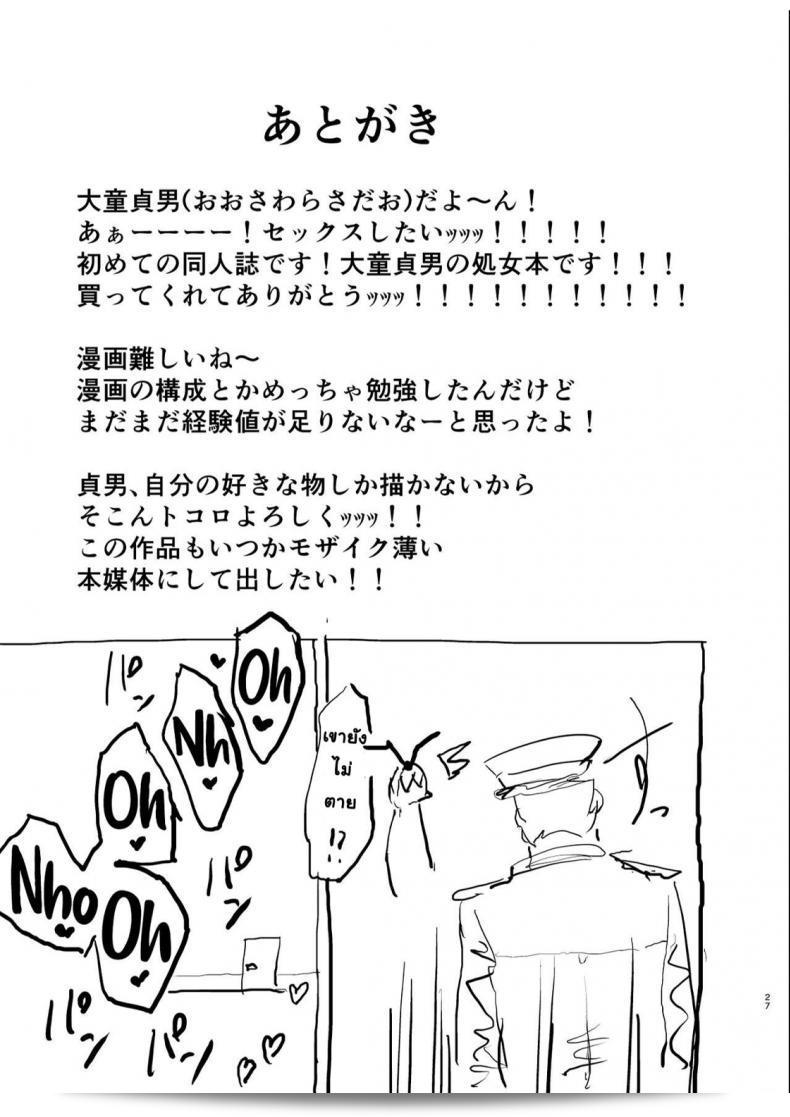 あとがき
大童貞男(おおさわらさだお)だよ～ん！
あぁーーーー！セックスしたいｯｯｯ！！！！！
初めての同人誌です！大童貞男の処女本です！！！
買ってくれてありがとうｯｯｯ！！！！！！！！！！！
漫画難しいね～
漫画の構成とかめっちゃ勉強したんだけど
まだまだ経験値が足りないなーと思ったよ！
貞男、自分の好きな物しか描かないから
そこんトコロよろしくｯｯｯ！！
この作品もいつかモザイク薄い
本媒体にして出したい！！
Oh
Nh
Oh
Nho
Oh
パン
パン
パン
パン
เขายัง
ไม่
ตาย
!?
27